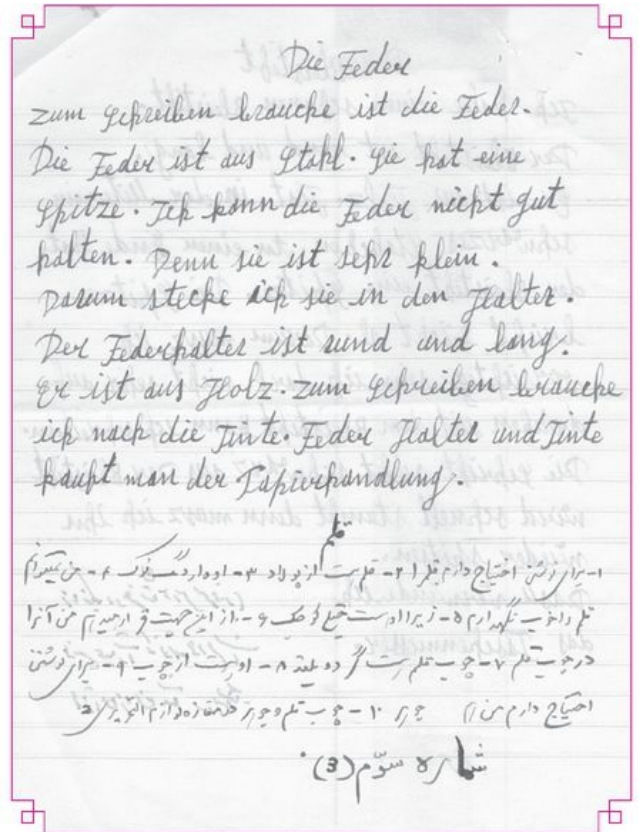 Die Feder
zum Schreiben brauche ist die Feder.
Die Feder ist aus Stahl. Sie hat eine
Spitze. Ich kann die Feder nicht gut
halten. Denn sie ist sehr klein.
Darum stecke ich sie in den Halter.
Der Federhalter ist rund und lang.
Er ist aus Holz. zum Schreiben brauche
ich noch die Tinte. Feder Halter und Tinte
kauft man der Papierhandlung.
قلم
۱- برای نوشتن احتیاج دارم قلم را ۲- قلم است از پولاد ۳- او دارد یک نوک ۴- من نمیتوانم
قلم را خوب نگهدارم ۵- زیرا او است خیلی کوچک ۶- از این جهت من آنرا
در چوب قلم ۷- چوب قلم است گرد و بلند ۸- او است از چوب ۹- برای نوشتن
احتیاج دارم من ۱۰- چوب قلم و
شماره سوّم (3)